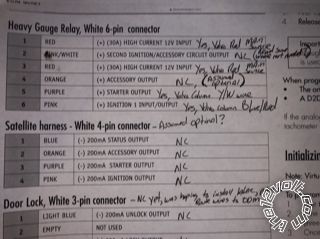 Heavy Gauge Relay, White 6-pin connector
1 RED (+) (30A) HIGH CURRENT 12V INPUT Yes, Volvo Red Main
2 PINK/WHITE (+) SECOND IGNITION/ACCESSORY CIRCUIT OUTPUT NC
3 RED (+) (30A) HIGH CURRENT 12V INPUT Yes, Volvo Red
4 ORANGE (+) ACCESSORY OUTPUT NC, (assumed optional)
5 PURPLE (+) STARTER OUTPUT Yes, Volvo Column Y/W wire
6 PINK (+) IGNITION 1 INPUT/OUTPUT Yes, Volvo Column Blue/Red
Satellite harness - White 4-pin connector - Assumed optional?
1 BLUE (-) 200mA STATUS OUTPUT NC
2 ORANGE (-) 200mA ACCESSORY OUTPUT NC
3 PURPLE (-) 200mA STARTER OUTPUT NC
4 PINK (-) 200mA IGNITION OUTPUT NC
Door Lock, White 3-pin connector - NC yet, was hoping to install
1 LIGHT BLUE (-) 200mA UNLOCK OUTPUT NC
2 EMPTY NOT USED
4 Release
Import
When prog
The
A D2D
If the analo
tachometer
Initializin
Note: Virtu
the12volt.com